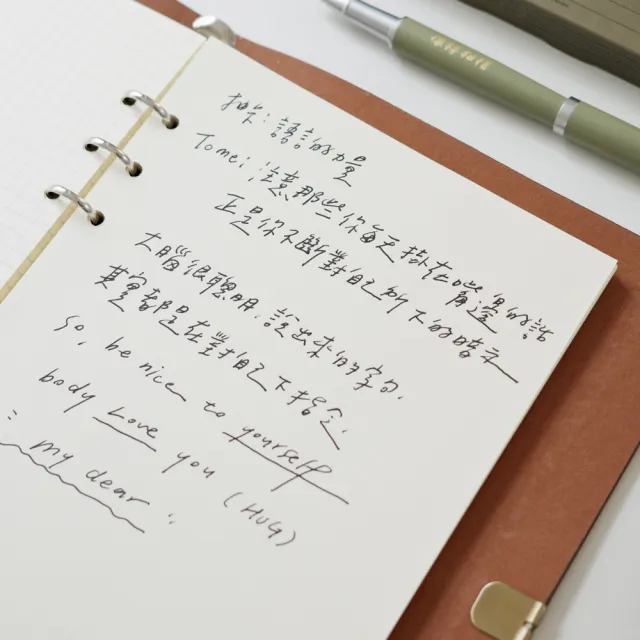 抽片:語言的力量
To me:注意那些你每天掛在嘴邊的話
正是你不斷對自己所下的暗示
大腦很聰明,說出來的字句,
其實都是在對自己下指令.
So, be nice to yourself
body Love you (HUG)
my dear